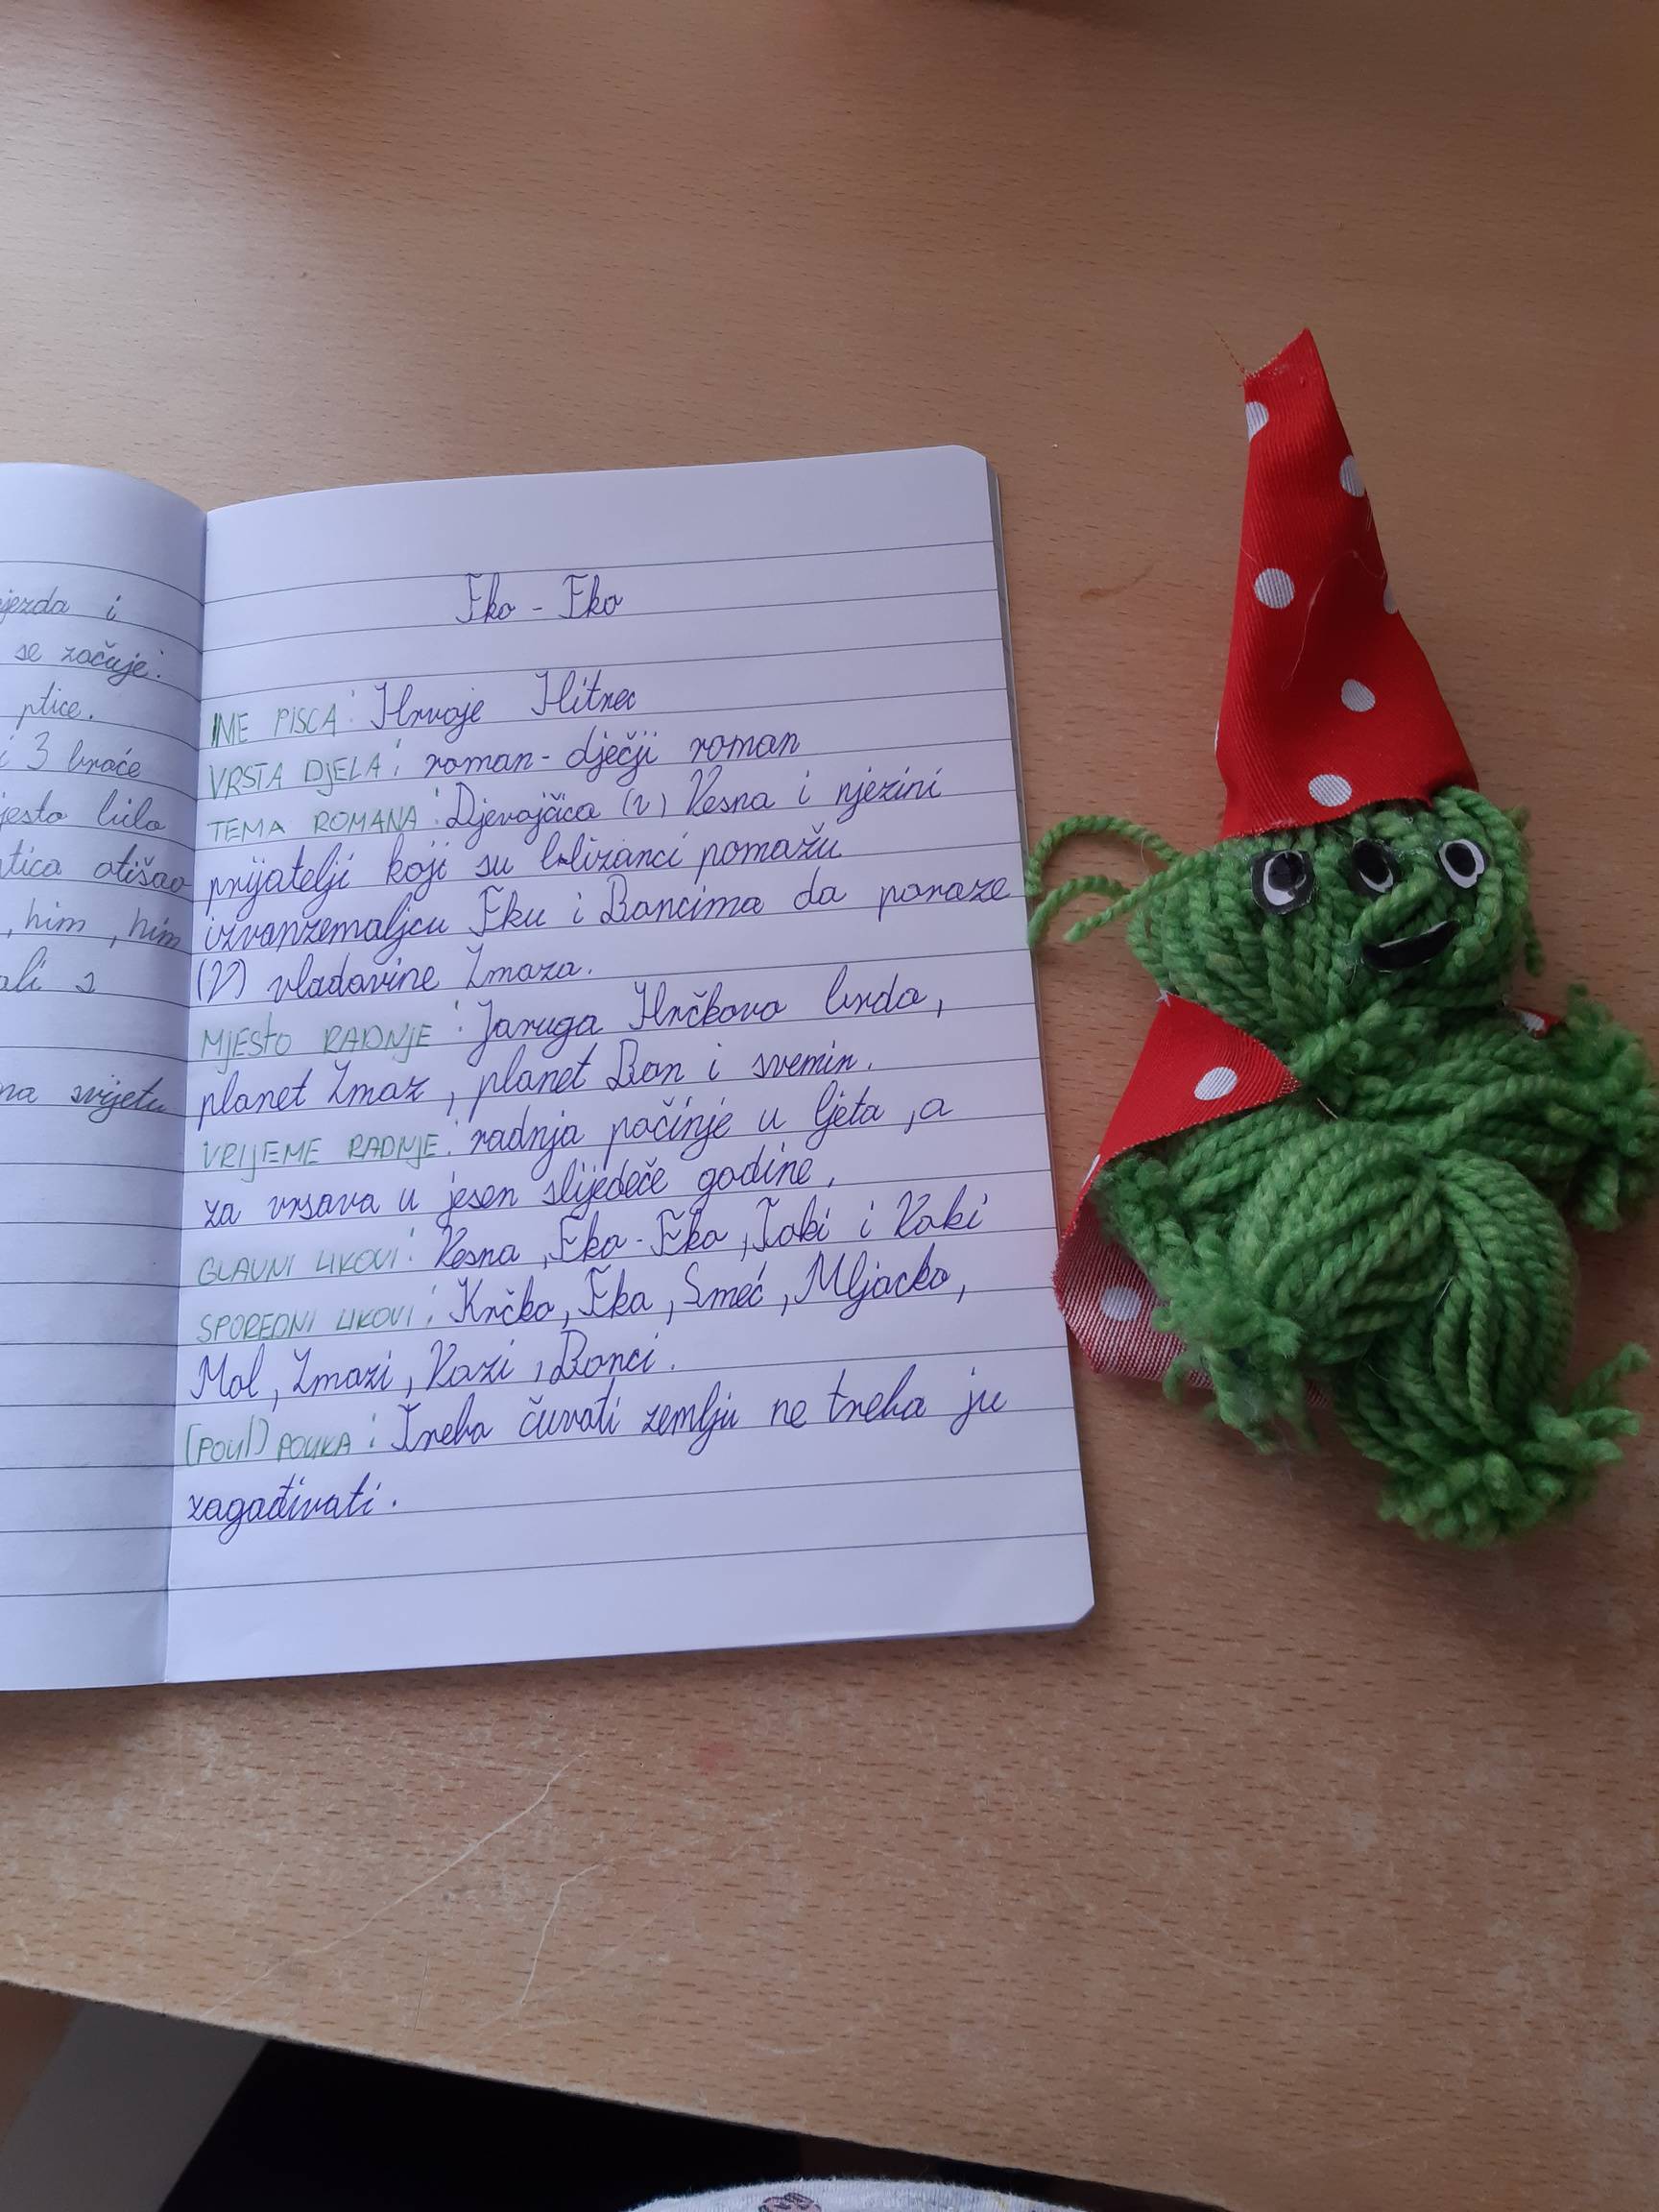 jezda i
se začuje:
ptice.
i 3 braće
jesto bilo
tica otišao
, him , him
ali s
na svijetu
Eko - Eko
IME PISCA: Hrvoje Hitrec
VRSTA DJELA: roman - dječji roman
TEMA ROMANA: Djevojčica (v) Vesna i njezini
prijatelji koji su blizanci pomažu
izvanzemaljcu Eku i Boncima da poraze
(V) vladavine Zmaza.
MJESTO RADNJE: Jaruga Hrčkovo brdo,
planet Zmaz, planet Bon i svemir.
VRIJEME RADNJE: radnja počinje u ljeta, a
za vrsava u jesen slijedeče godine.
GLAVNI LIKOVI: Vesna, Eko-Eko, Toki i Voki
SPOREDNI LIKOVI: Krčko, Eka, Smeć, Mljacko,
Mol, Zmazi, Vozi, Bonci.
(POUl) POUKA: Treba čuvati zemlju ne treba ju
zagađivati.